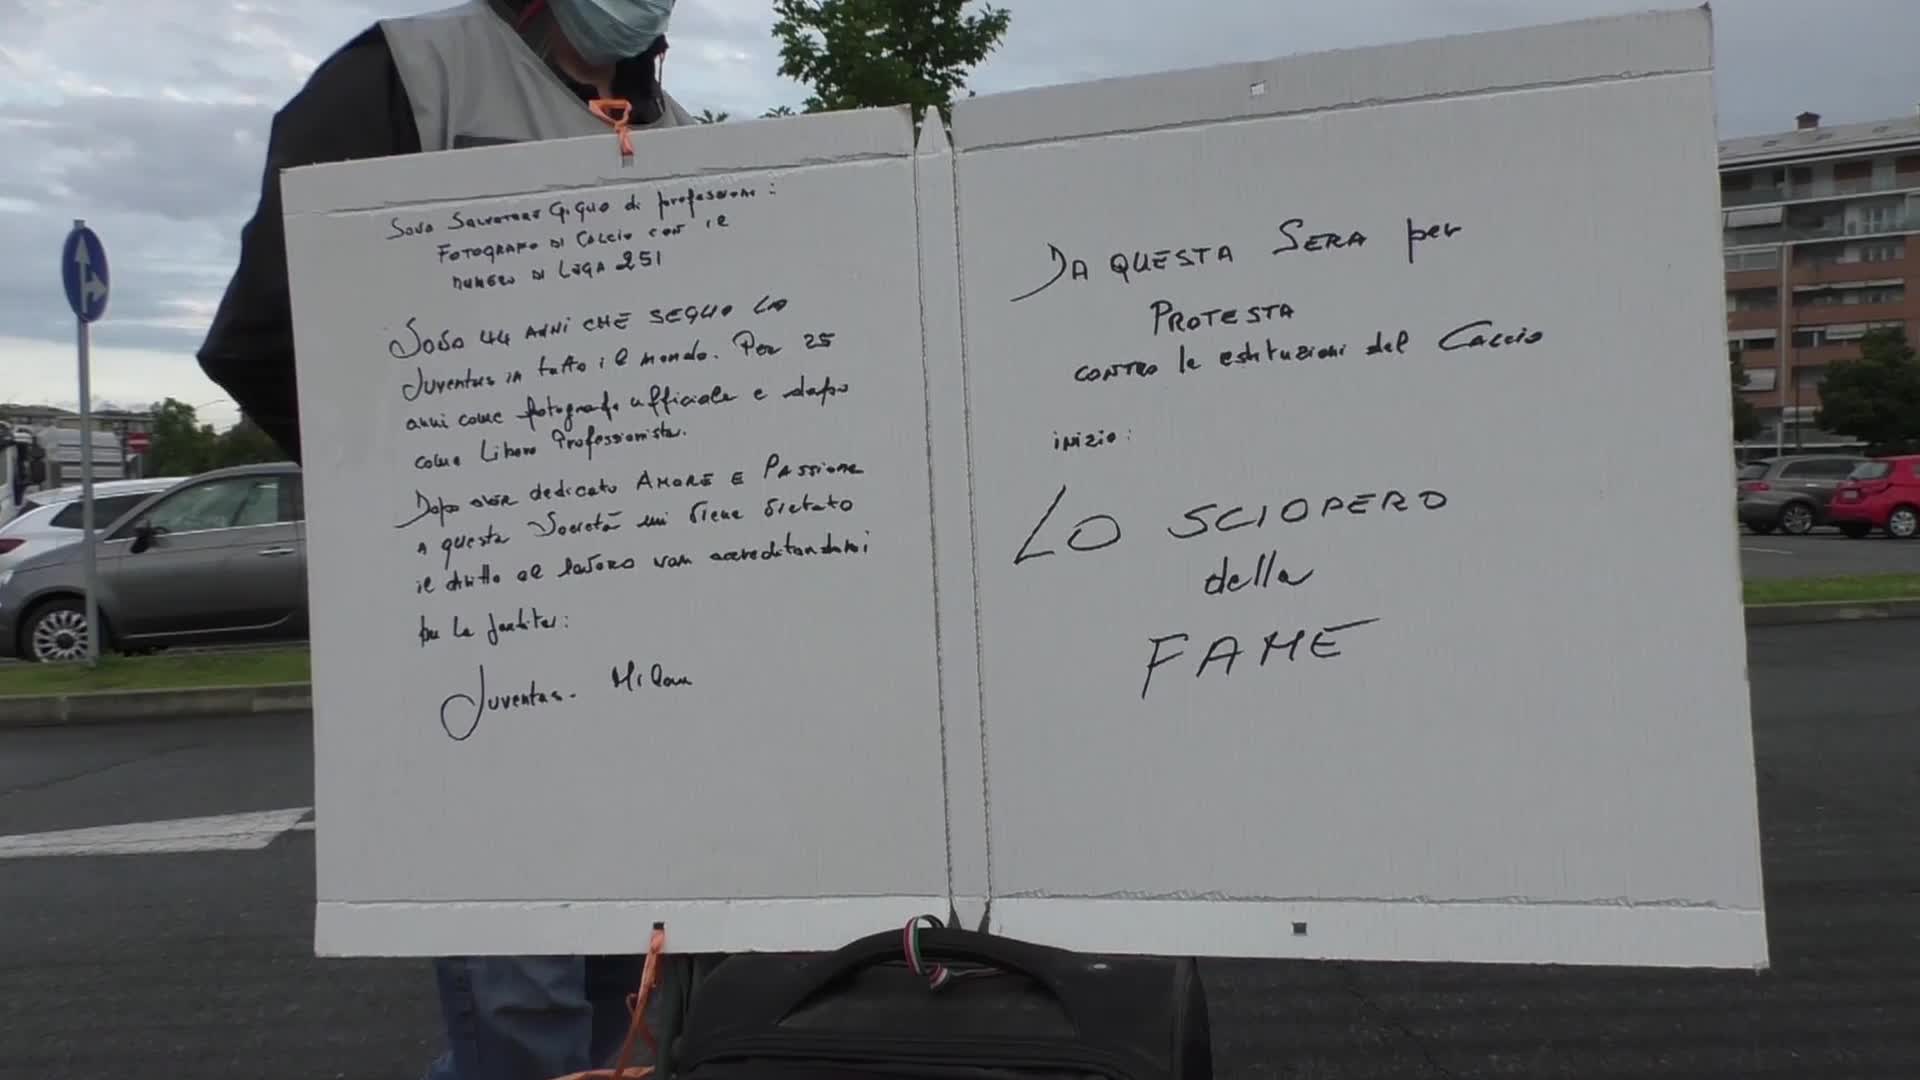 Sono Salvatore Giglio di professione:
FOTOGRAFO DI CALCIO CON IL
NUMERO DI LEGA 251
SONO 44 ANNI CHE SEGUO LA
Juventus in tutto il mondo. Per 25
anni come fotografo ufficiale e dopo
come Libero Professionista.
Dopo aver dedicato AMORE E PASSIONE
a questa Società mi viene vietato
il diritto al lavoro non accreditandomi
per la partita:
Juventus - Milan
DA QUESTA SERA per
PROTESTA
CONTRO le estituzioni del Calcio
inizio:
LO SCIOPERO
della
FAME